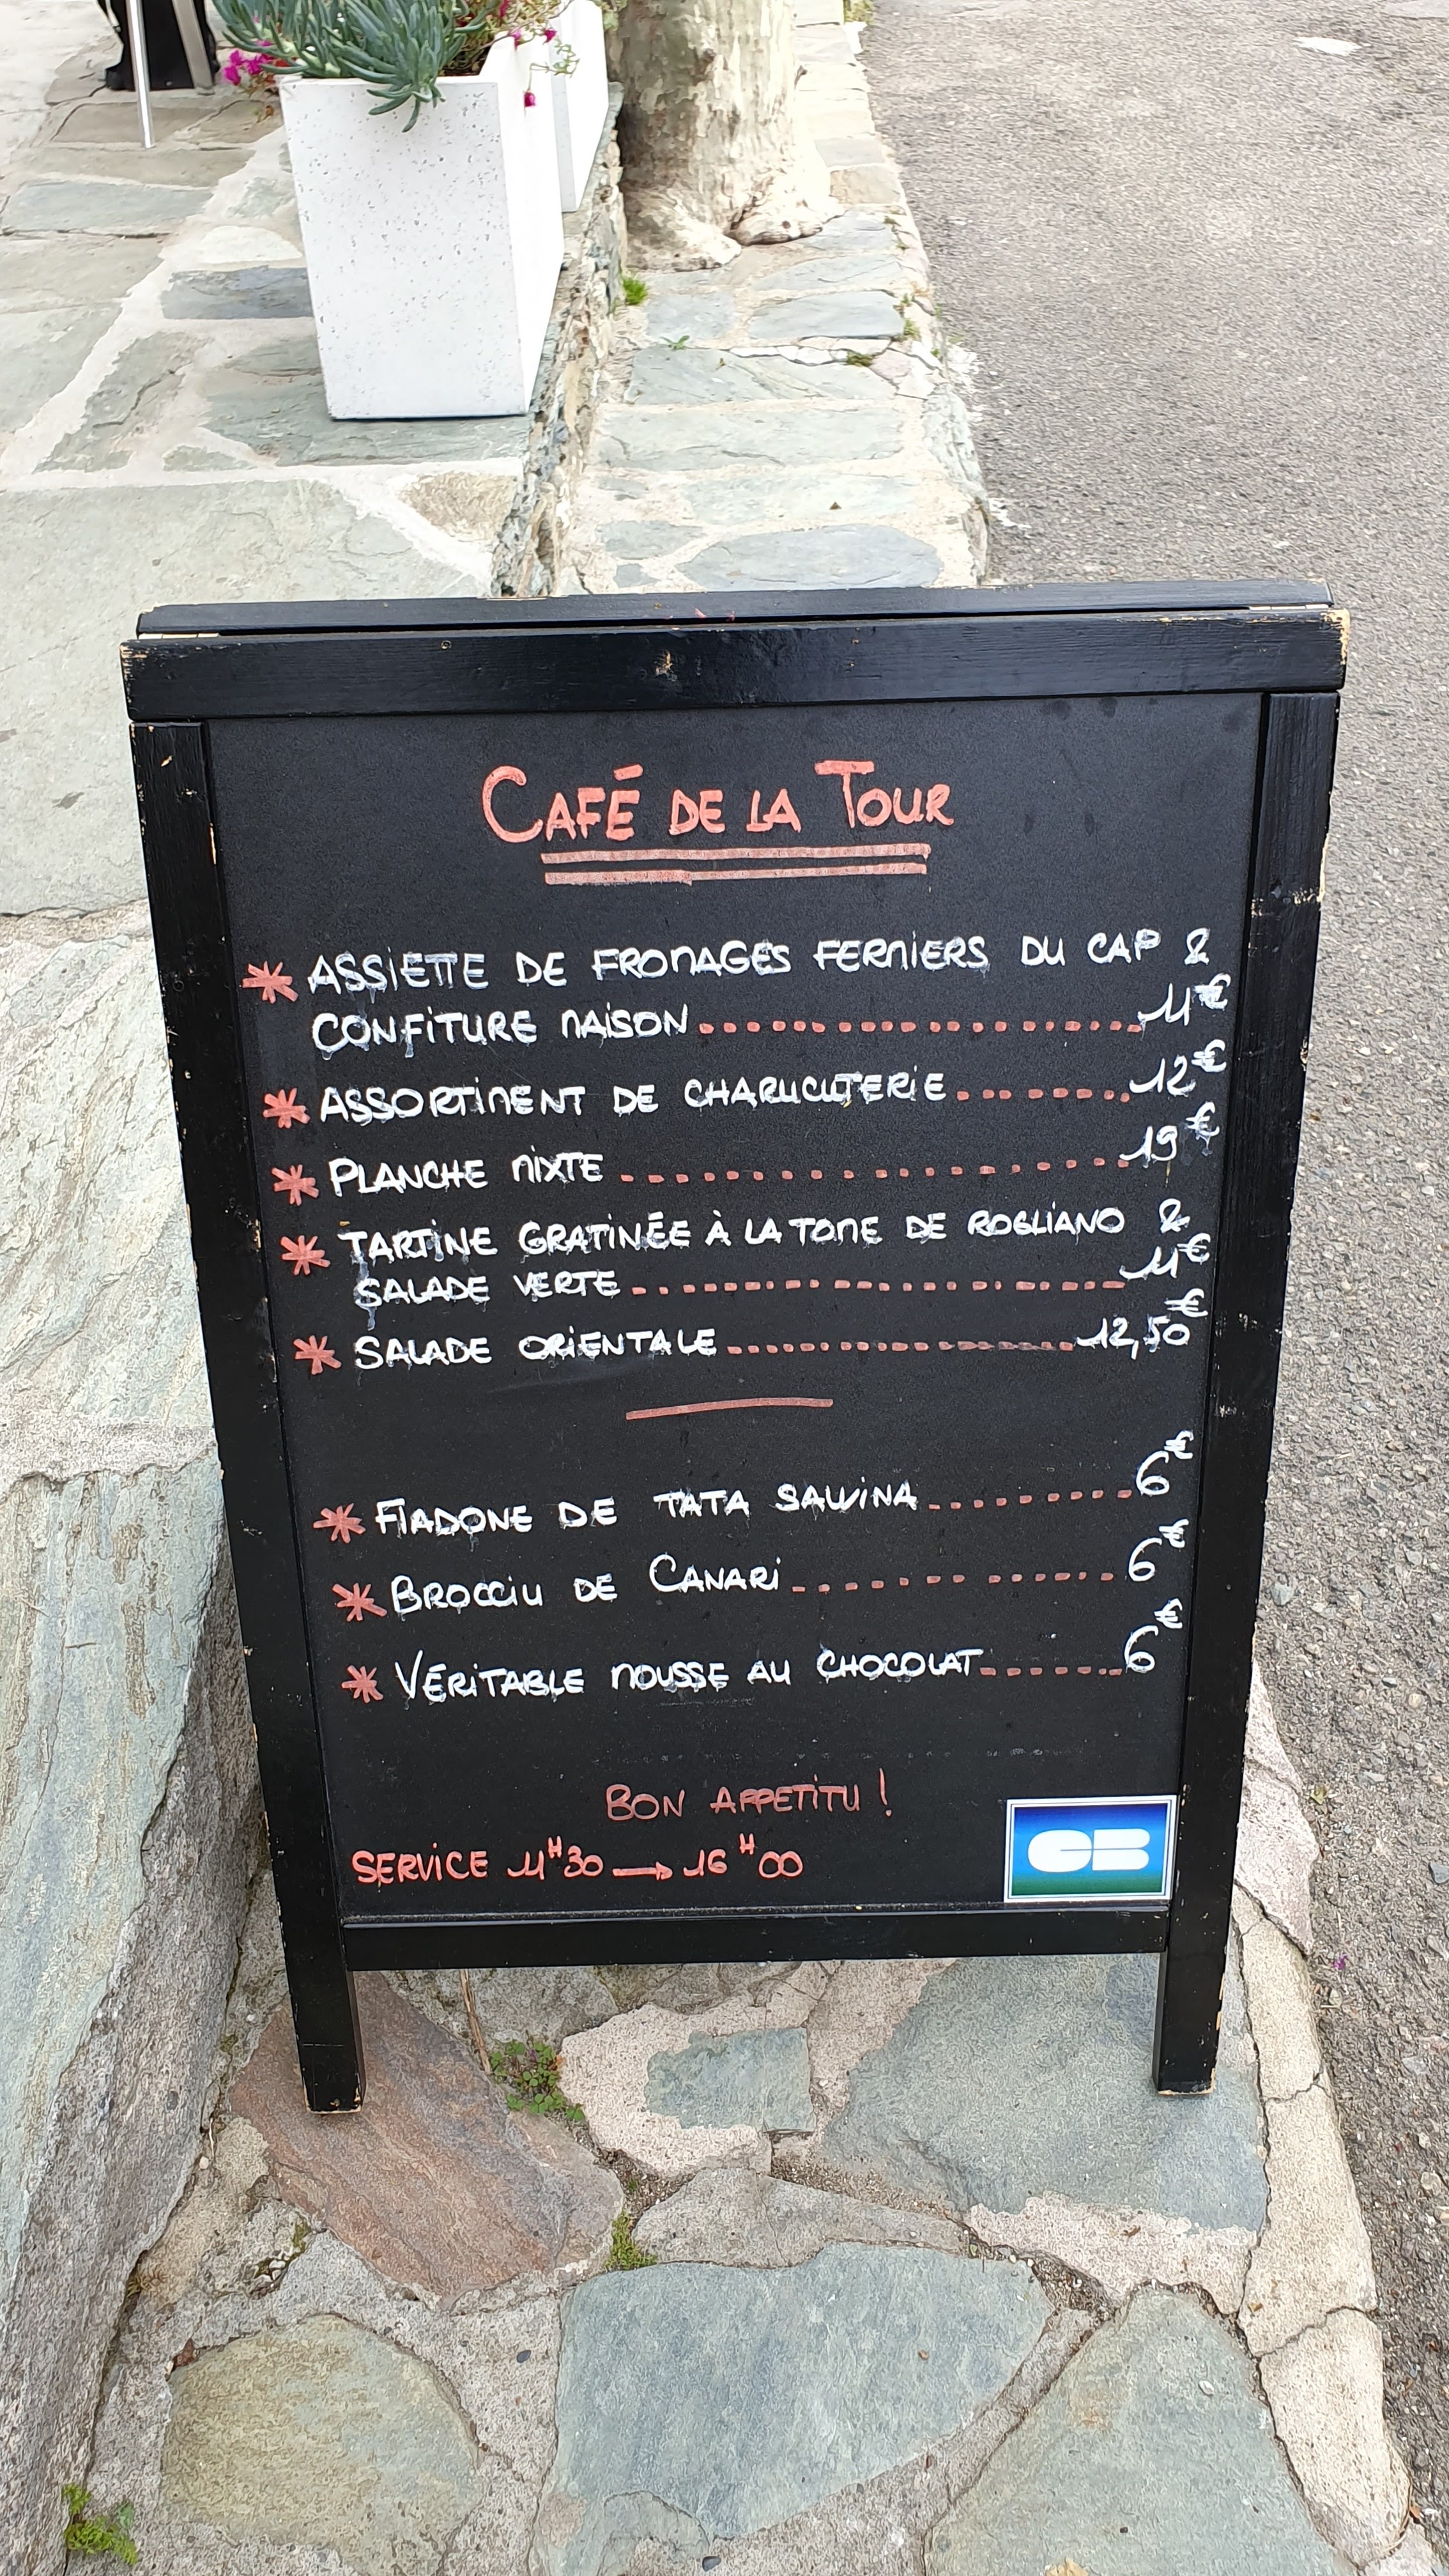 CAFÉ DE LA TOUR
* ASSIETTE DE FROMAGES FERMIERS DU CAP &
CONFITURE MAISON.....................11€
* ASSORTIMENT DE CHARUCUTERIE........12€
* PLANCHE MIXTE....................19€
* TARTINE GRATINÉE À LA TOME DE ROGLIANO &
SALADE VERTE.......................11€
* SALADE ORIENTALE.....................12,50€
* FIADONE DE TATA SAVVINA..........6€
* BROCCIU DE CANARI..............6€
* VÉRITABLE MOUSSE AU CHOCOLAT.......6€
BON APPETITU !
SERVICE 11H30 → 16H00
CB